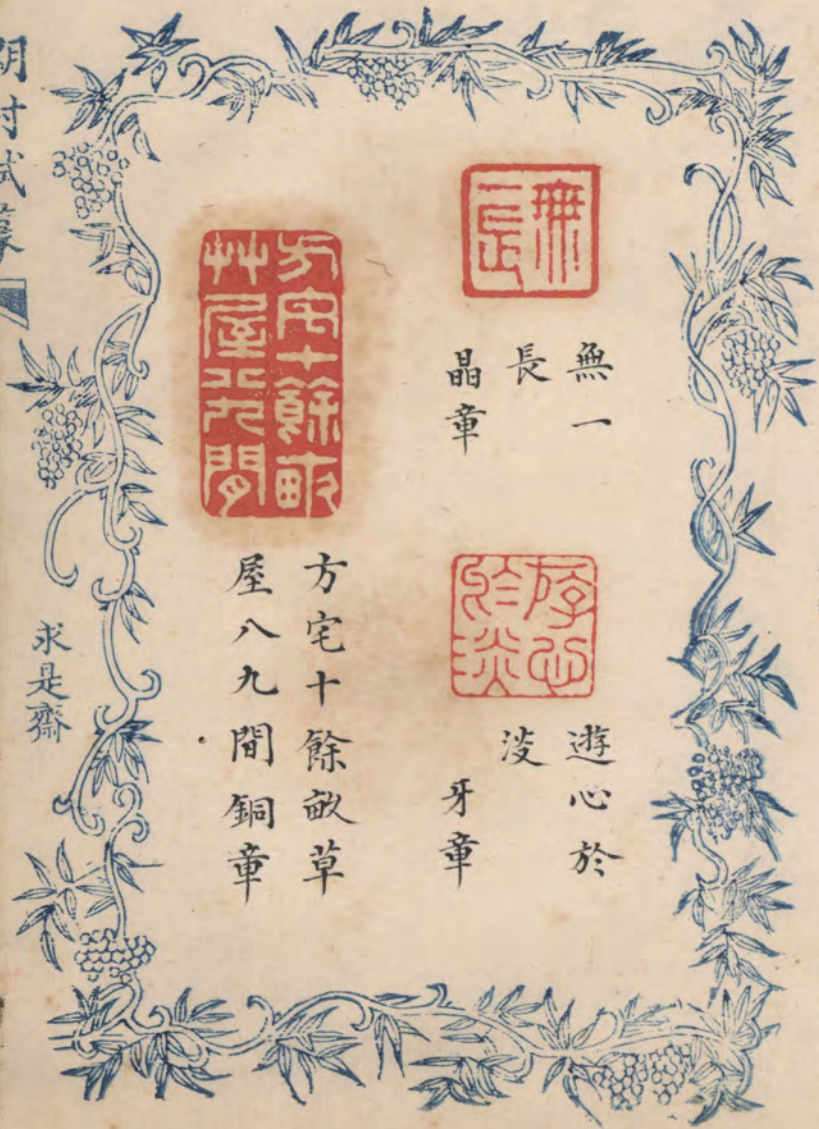 無
一長
無一
長
晶章
游心
於淡
遊心於
淡
牙章
方宅十餘畝
艸屋八九間
方宅十餘畝草
屋八九間銅章
求是齋